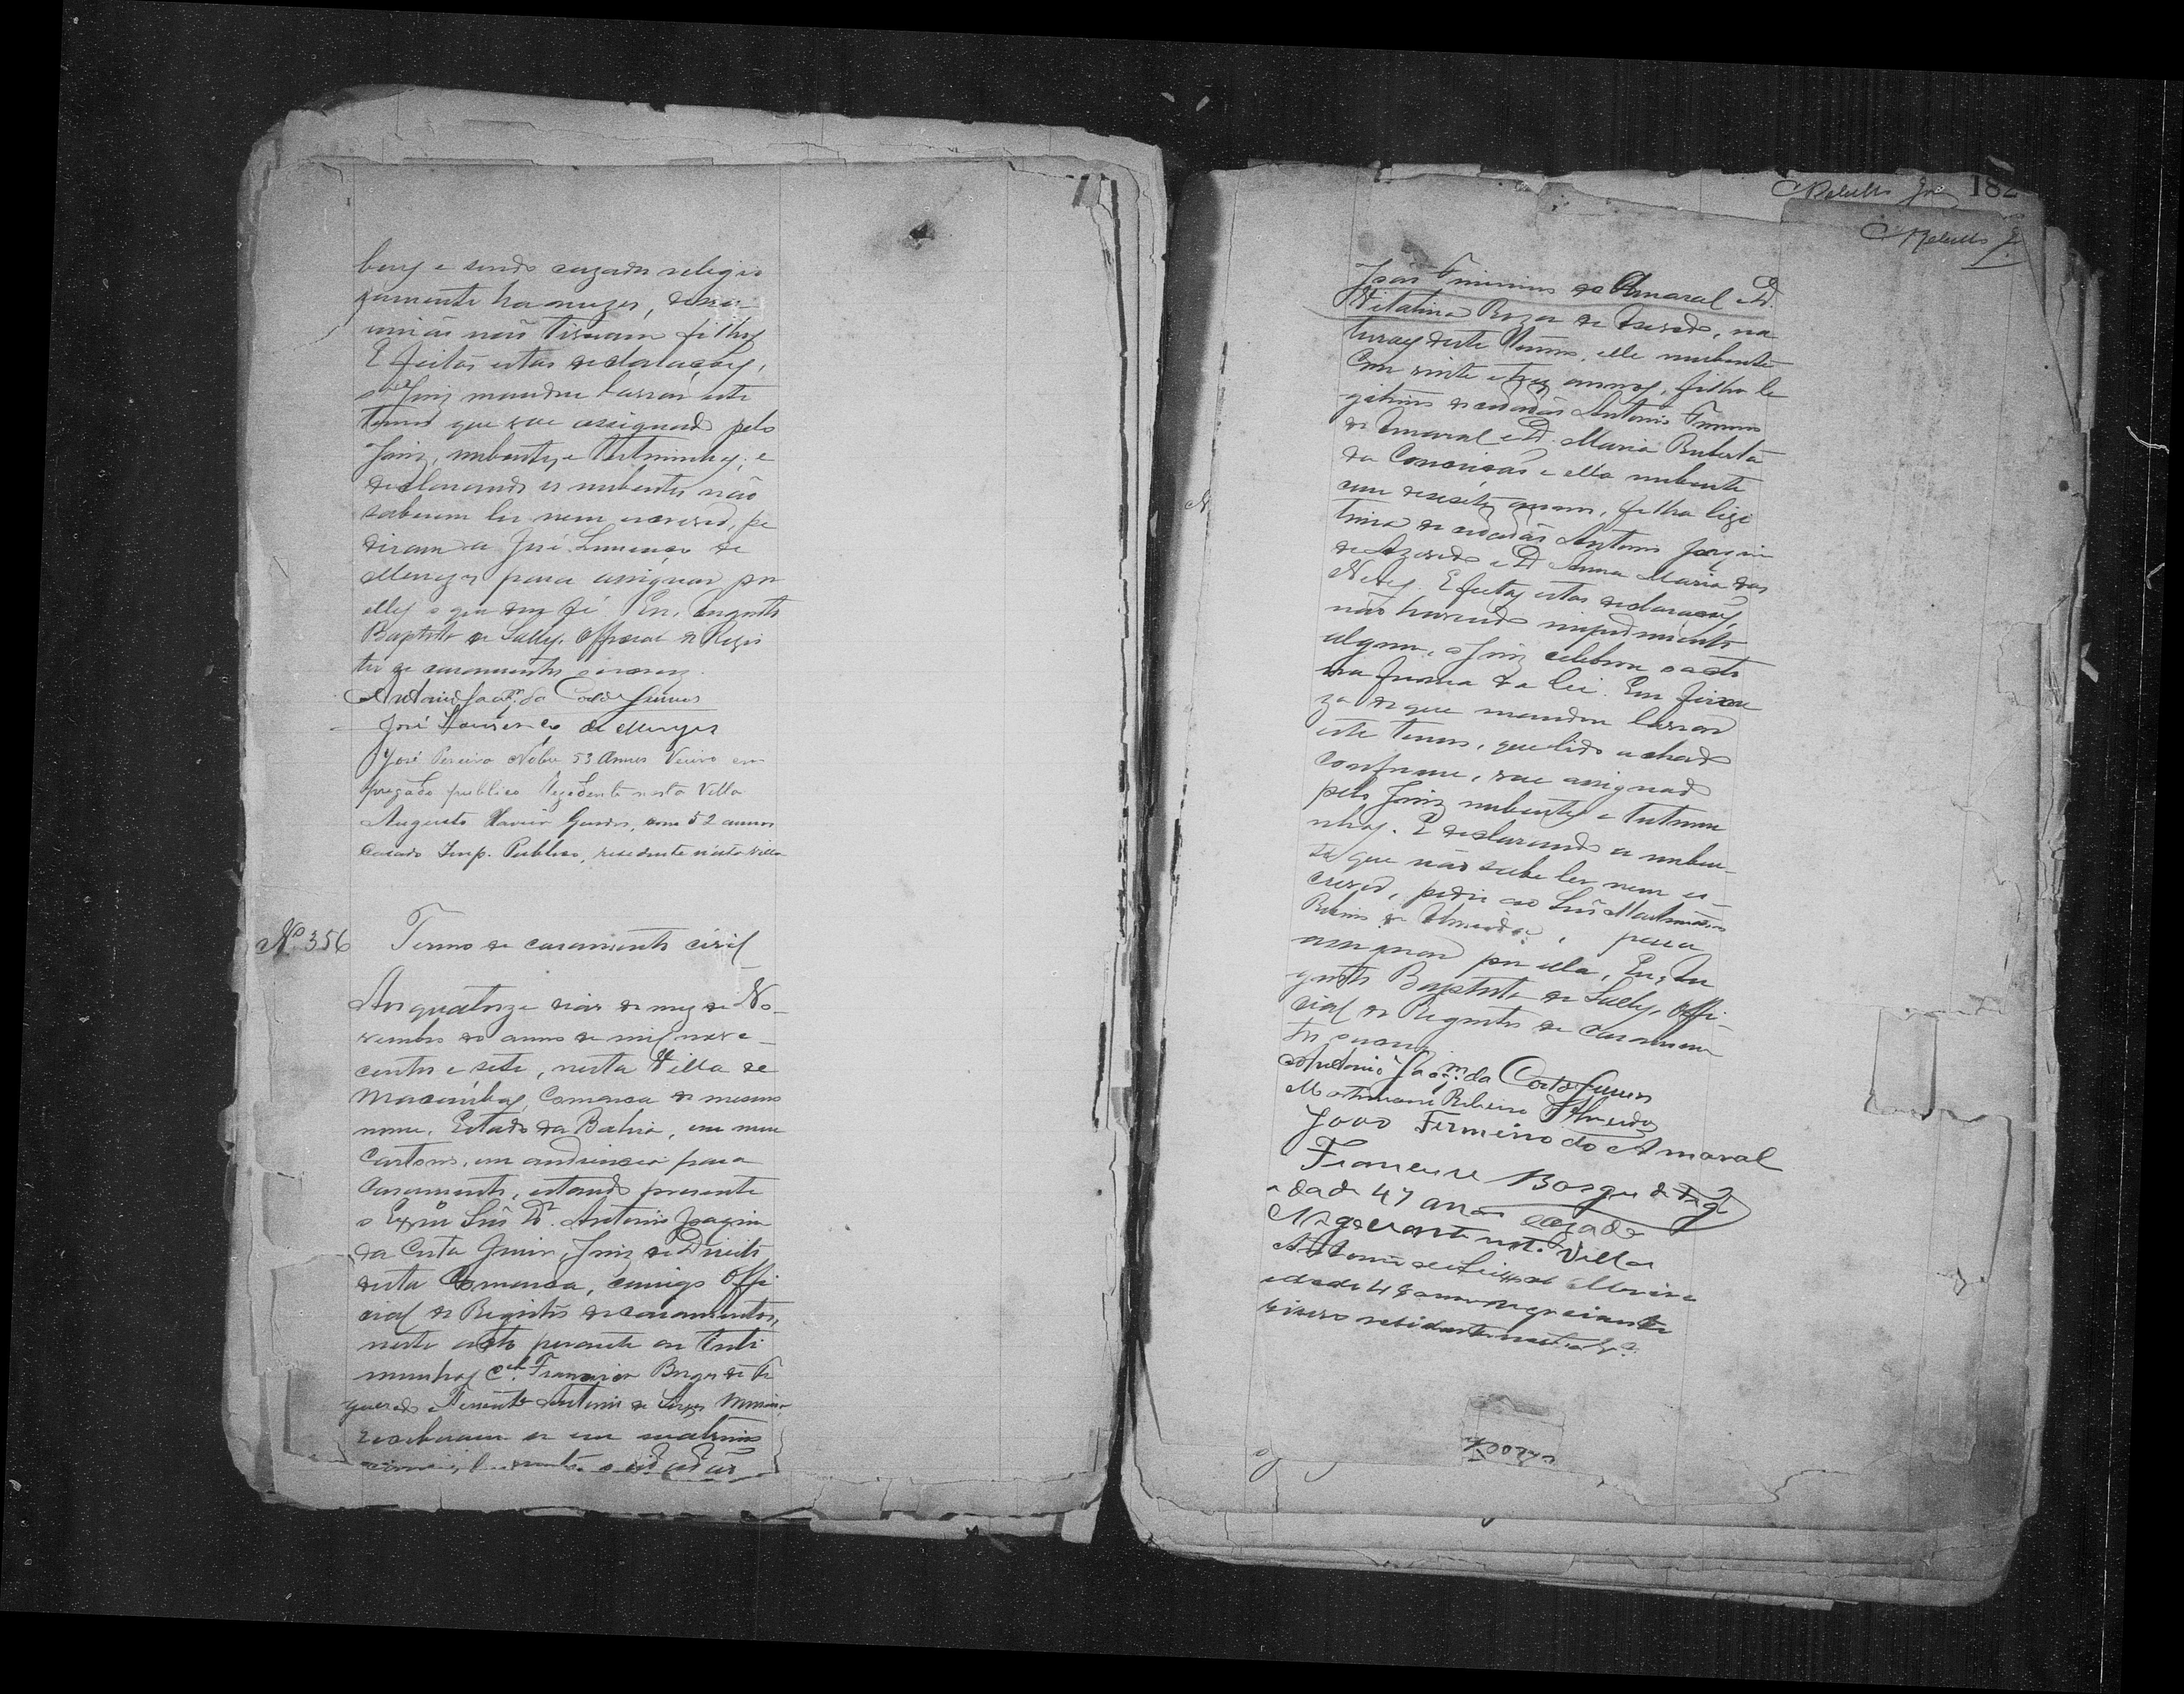 bory e sendo cazados religio
zamente ha mezes, dessa
união não tiveram filhos
E feitas estas declarações,
o Juiz mandou lavrar este
termo que vae assignado pelo
Juiz, nubentes e testimunhas; e
declarando os nubentes não
saberem ler nem escrever, pe
diram a José Lourenço de
Menezes para assignar por
elles o que dou fé. Eu, Augusto
Baptista de Sully, Official do Regis
tro de casamentos escrevy.
Antonio Joaqm. da Costa Junior
José Lourenço de Menezes
José Pereira Nobre 53 annos Viuvo em
pregado publico Rezidente nesta Villa
Augusto Xavier Guedes, com 52 annos
Casado Emp. Publico, residente n'esta Villa
No. 356 Termo de casamento civil
Aos quatorze dias do mez de No-
vembro do anno de mil nove-
centos e sete, nesta Villa de
Macaúbas, Comarca do mesmo
nome, Estado da Bahia, em meu
Cartorio, em audiencia para
Casamento, estando presente
o Exmo Snr Dr. Antonio Joaquim
da Costa Junior, Juiz de Direito
desta Comarca, comigo Offi
cial do Registro de casamentos,
neste acto perante as testi
munhas Cel. Francisco Borges de Fi
gueredo e Tenente Antonio de Moreira,
receberam se em matrimo
o cidadão
182
João Firmino do Amaral e D.
Vitalina Roza de Azevedo, na
turaes deste Termo, elle nubente
com vinte e tres annos, filho le
gitimo do cidadão Antonio Firmino
do Amaral e D. Maria
da Conceição e ella nubente
com desesete annos, filha ligi
tima do cidadão Antonio Joaquim
de Azevedo e D. Anna Maria das
Neves. E feitas estas declarações,
não havendo impedimento
algum, o Juiz celebrou o acto
na forma da lei. Em firme
za do que mandou lavrar
este termo, que lido e achado
conforme, vae assignado
pelo Juiz nubentes e testimu
nhas. E declarando a nuben-
te que não sabe ler nem es-
crever, pediu ao Snr Martiniano
Ribeiro de Almeida, para
assignar por ella, Eu, Au
gusto Baptista de Sully, Offi-
cial do Registro de casamen
tos escrevy
Antonio Joaqm. da Costa Junior
Martiniano Ribeiro Almeida
João Firmino do Amaral
Francisco Borges de Figdo
edade 47 annos cazado
Negociante nesta Villa
Antonio de Moreira
edade 48 annos negociante
viuvo residente nesta Va.